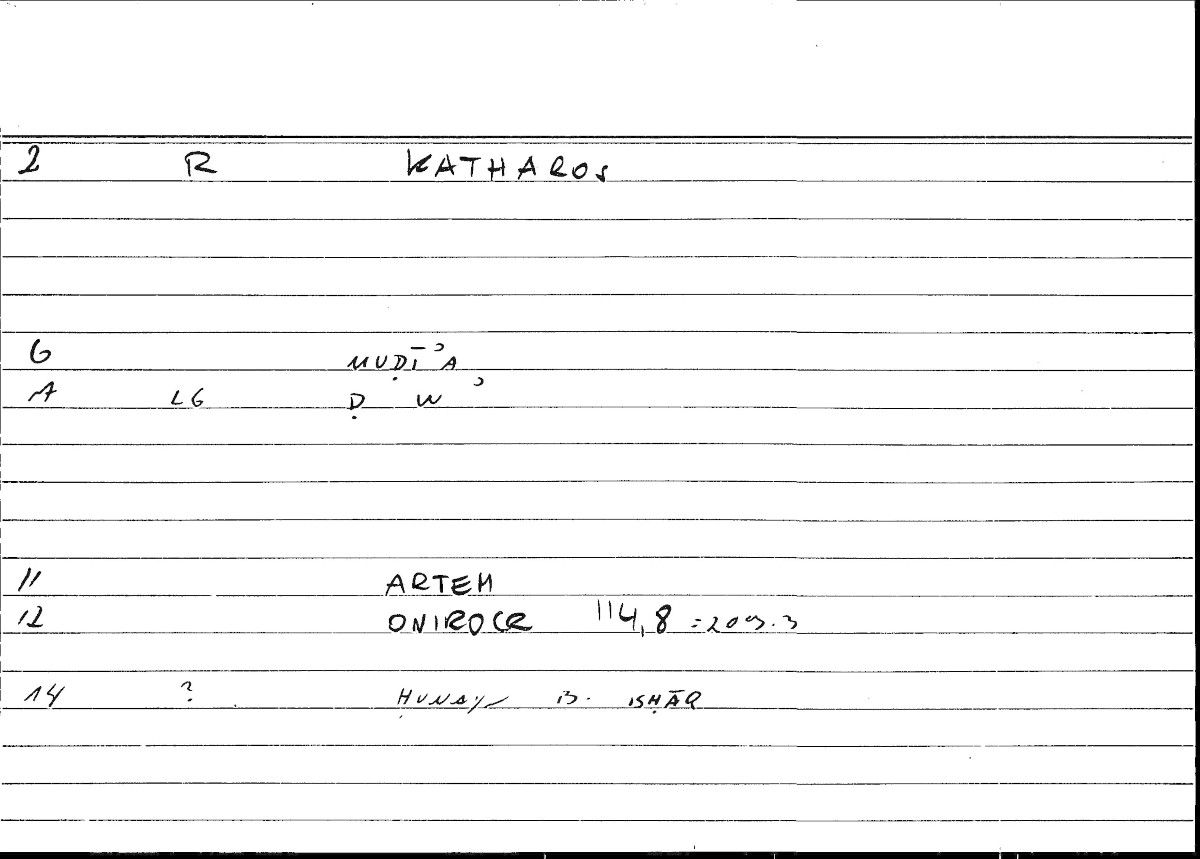 2 R KATHAROS
6 MUḌĪʾA
A LG Ḍ W ʾ
11 ARTEM
12 ONIROCR 114,8 = 209.3
14 ? ḤUNAYN B. ISḤĀQ